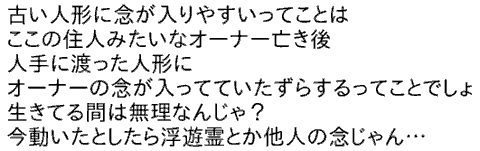 古い人形に念が入りやすいってことは
ここの住人みたいなオーナー亡き後
人手に渡った人形に
オーナーの念が入ってていたずらするってことでしょ
生きてる間は無理なんじゃ?
今動いたとしたら浮遊霊とか他人の念じゃん…